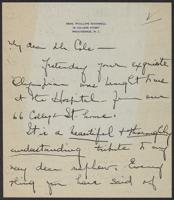 MRS. PHILLIPS GAMWELL
PROVIDENCE, R. I.
My dear Mr Cole —
Yesterday your exquisite
Olympian was brought to me
at the Hospital from our
66 College St home.
It is a beautiful & thoroughly
understanding tribute to my
very dear nephew. Every
thing you have said of